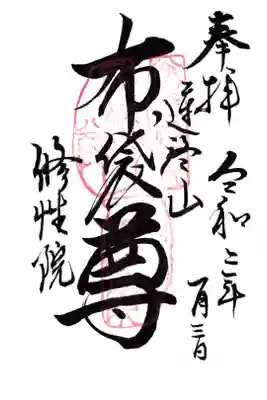 奉拝
令和二年
一月三日
運啓山
布袋尊
修性院